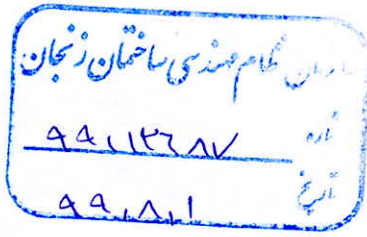 سازمان نظام مهندسی ساختمان زنجان
شماره ۹۹,۱۲۶۸۷
تاریخ ۹۹,۸,۱